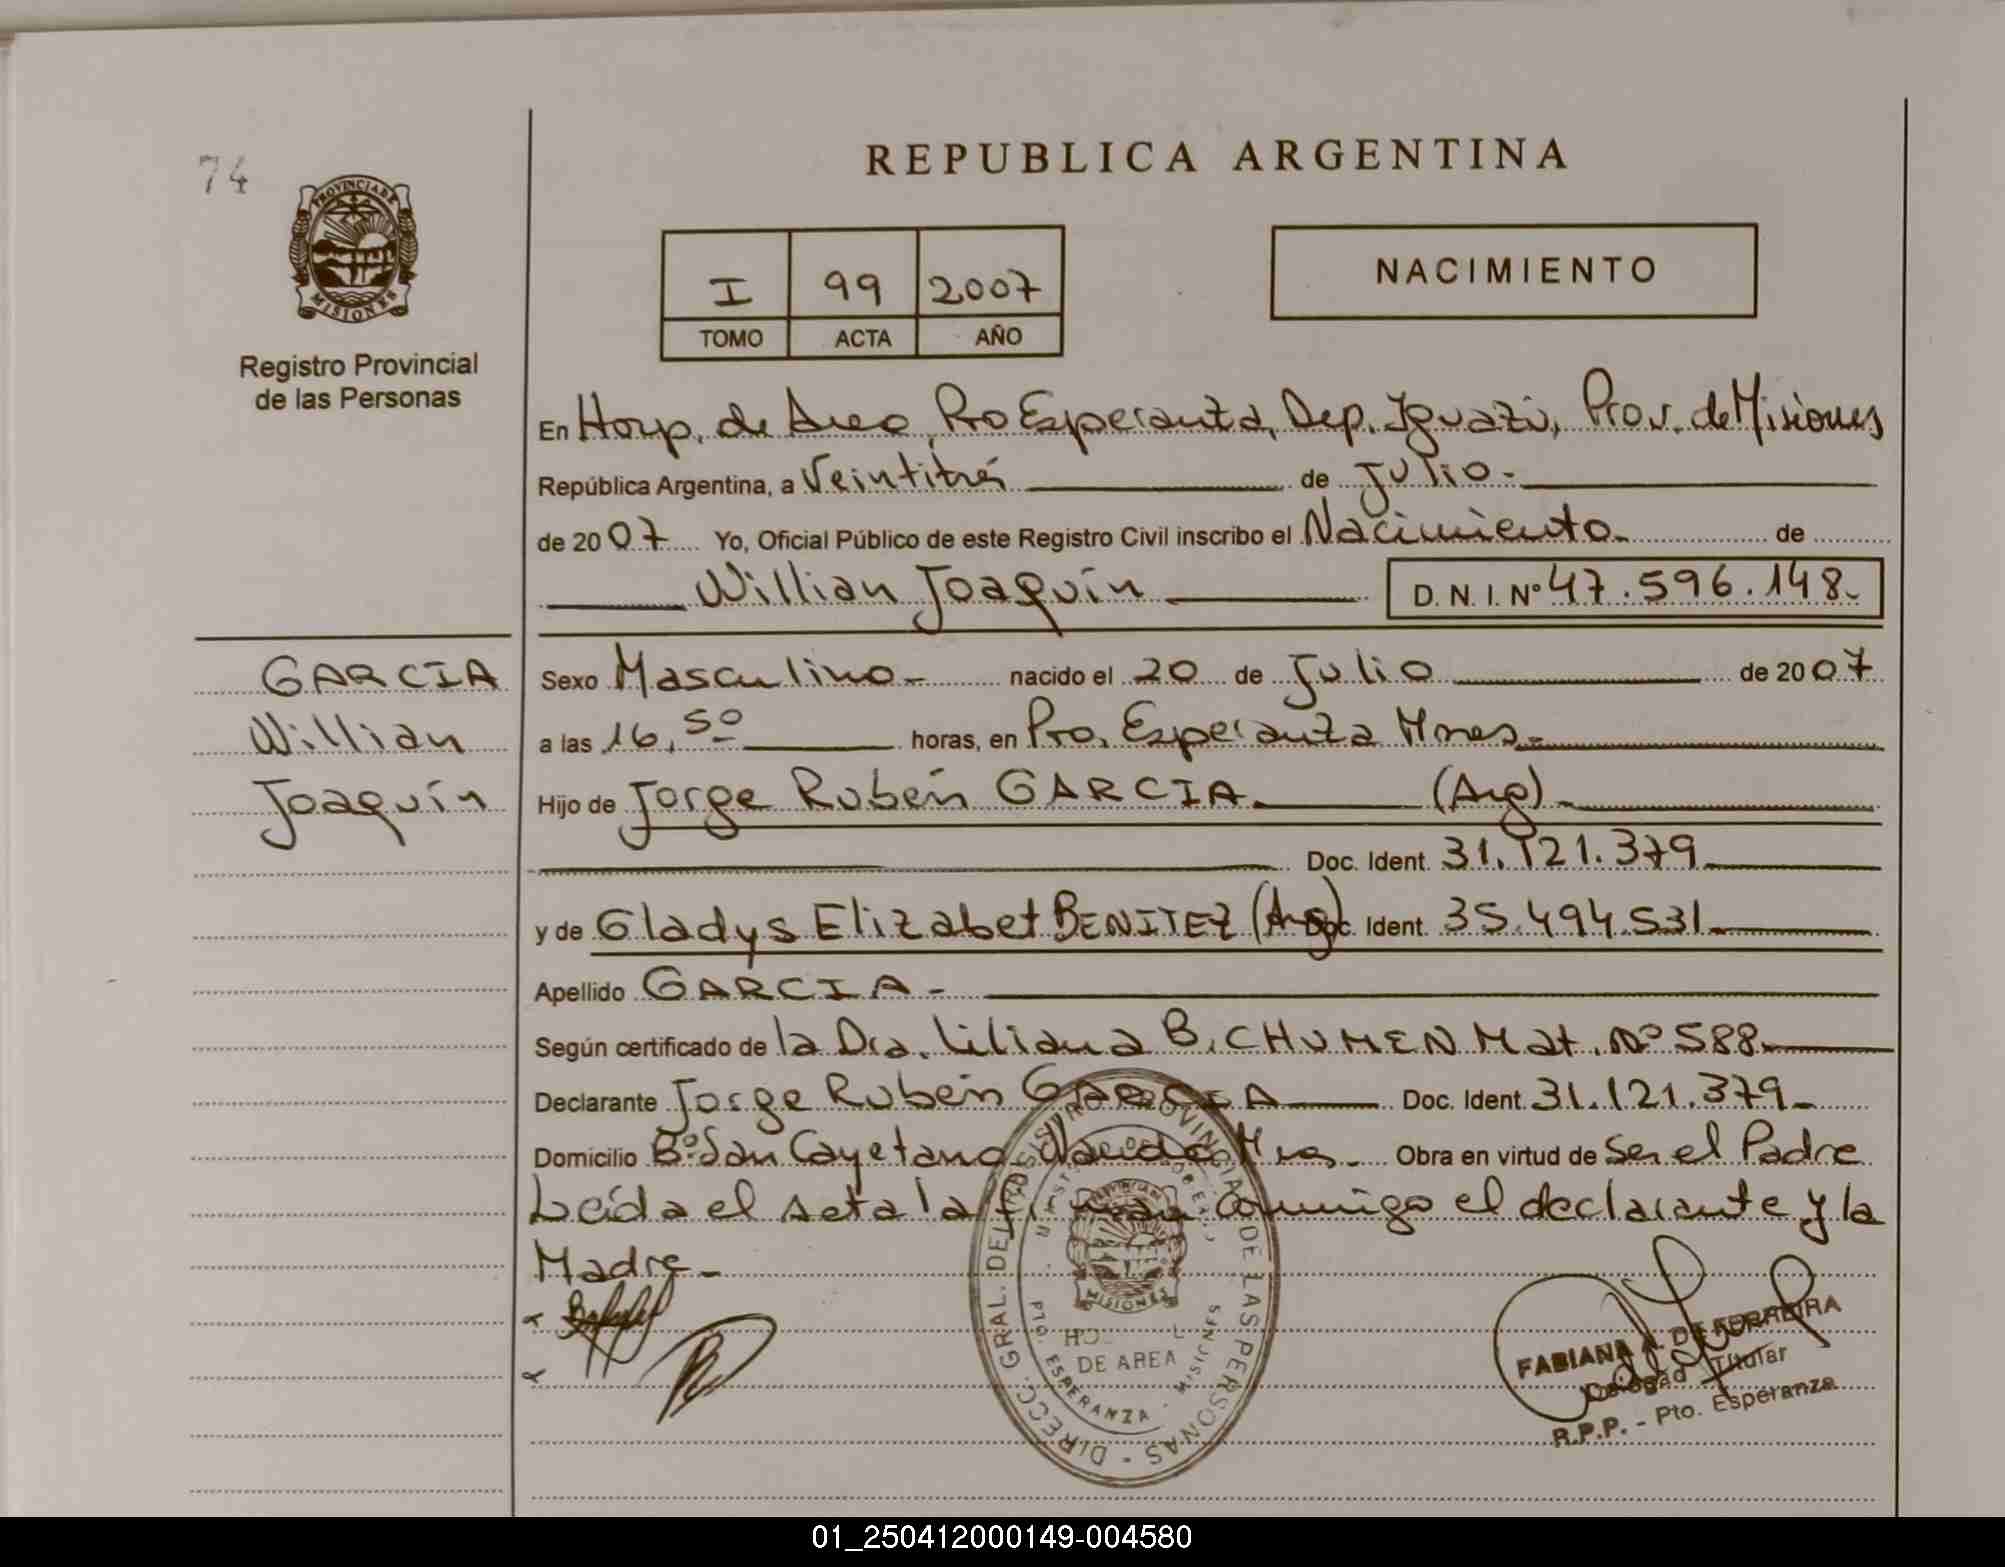 74
PROVINCIA DE
MISIONES
Registro Provincial
de las Personas
REPUBLICA ARGENTINA
I 99 2007
TOMO ACTA AÑO
NACIMIENTO
En Hosp. de Area, Pto Esperanza, Dep. Iguazú, Prov. de Misiones
República Argentina, a Veintitrés de Julio.-
de 2007 Yo, Oficial Público de este Registro Civil inscribo el Nacimiento de
Willian Joaquín D. N. I. Nº 47.596.148.-
GARCIA
Willian
Joaquín
Sexo Masculino.- nacido el 20 de Julio de 2007
a las 16,50 horas, en Pto. Esperanza Mnes.-
Hijo de Jorge Rubén GARCIA. (Arg).
Doc. Ident. 31.121.379
y de Gladys Elizabet BENITEZ (Arg) Doc. Ident. 35.494.531
Apellido GARCIA.-
Según certificado de la Dra. Liliana B. CHUMEN Mat. Nº 588.
Declarante Jorge Rubén GARCIA Doc. Ident. 31.121.379.-
Domicilio Bº San Cayetano Wanda Mnes.- Obra en virtud de Ser el Padre
Leída el acta la firman conmigo el declarante y la
Madre.-
DIRECC. GRAL. DEL REGISTRO PROVINCIAL DE LAS PERSONAS
PROVINCIA DE
MISIONES
DE AREA
PTO. ESPERANZA - MISIONES
FABIANA A. DE FERREIRA
Delegada Titular
R.P.P. - Pto. Esperanza
01_250412000149-004580